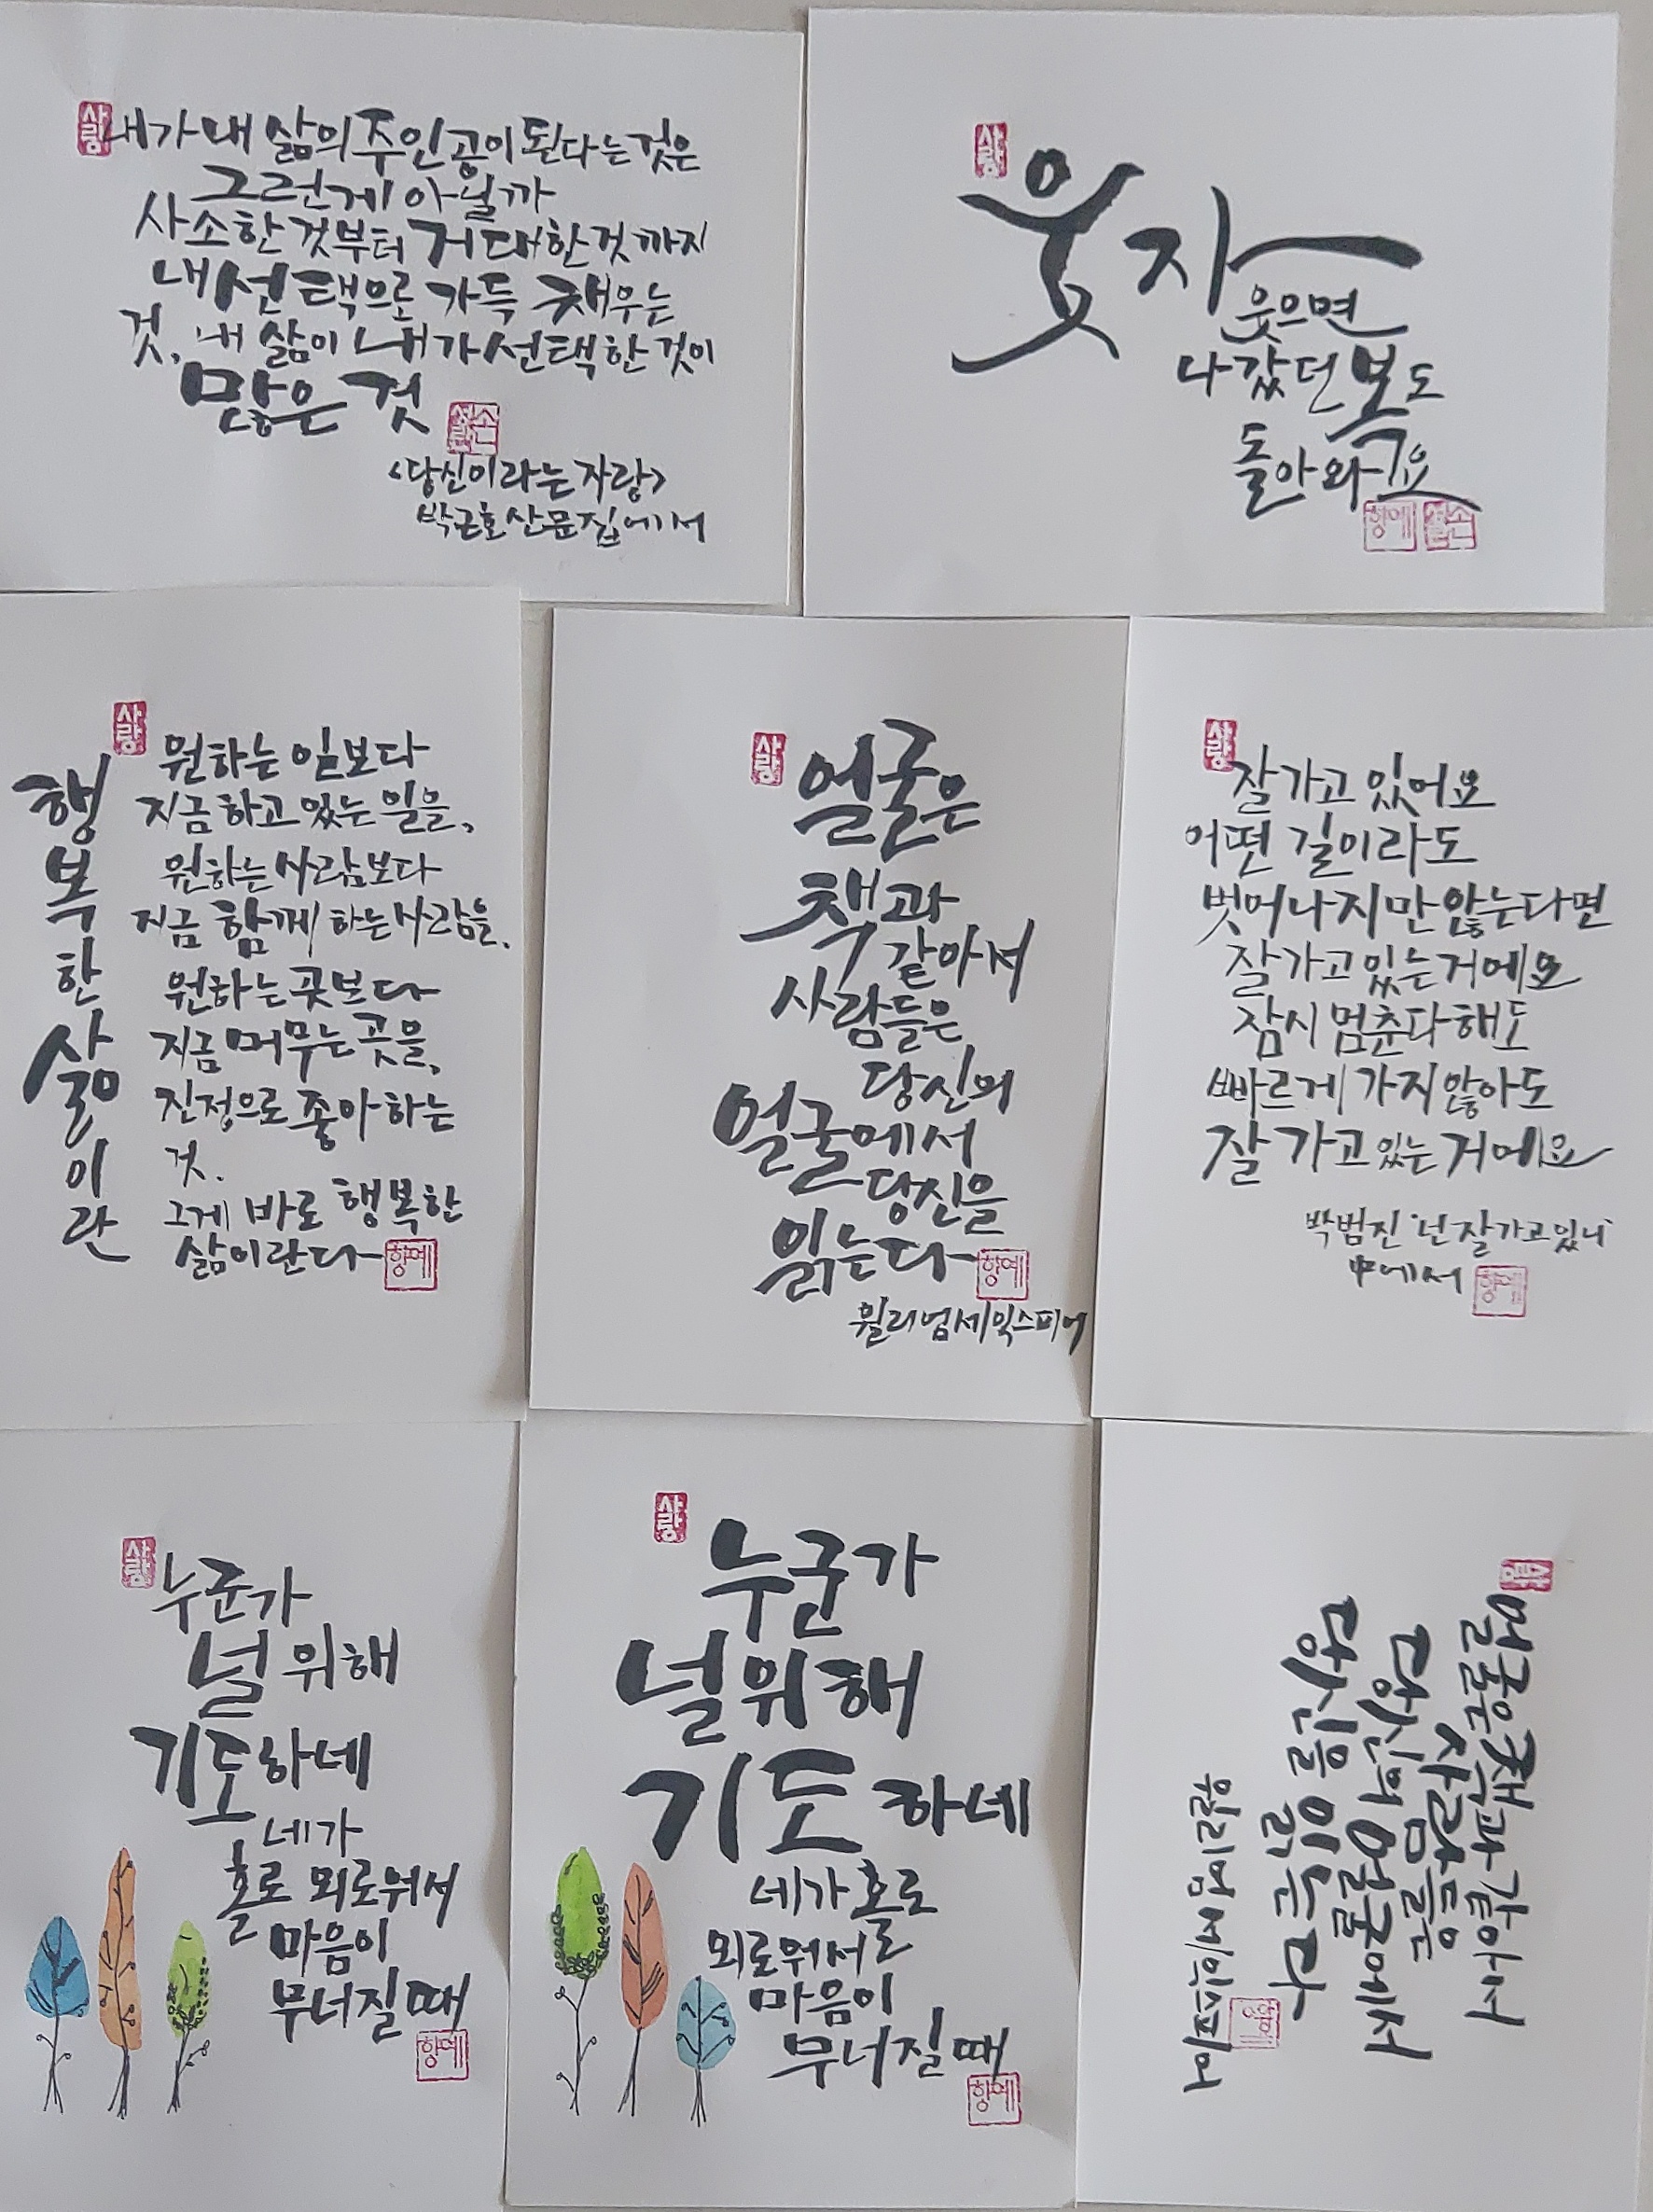 사랑
내가 내 삶의 주인공이 된다는 것은
그런게 아닐까
사소한 것부터 거대한 것까지
내 선택으로 가득 채우는
것, 내 삶이 내가 선택한 것이
많은 것
<당신이라는 자랑>
박근호 산문집에서
사랑
웃자
웃으면
나갔던 복도
돌아와요
향예
사랑
행복한 삶이란
원하는 일보다
지금 하고 있는 일을,
원하는 사람보다
지금 함께 하는 사람을,
원하는 곳보다
지금 머무는 곳을,
진정으로 좋아하는
것.
그게 바로 행복한
삶이란다
향예
사랑
얼굴은
책과
같아서
사람들은
당신의
얼굴에서
당신을
읽는다
향예
윌리엄세익스피어
사랑
잘 가고 있어요
어떤 길이라도
벗어나지만 않는다면
잘 가고 있는 거에요
잠시 멈춘다 해도
빠르게 가지 않아도
잘 가고 있는 거에요
박범진 '넌 잘 가고 있니'
中에서
향예
사랑
누군가
널 위해
기도하네
네가
홀로 외로워서
마음이
무너질 때
향예
사랑
누군가
널 위해
기도하네
네가 홀로
외로워서
마음이
무너질 때
향예
사랑
얼굴은 책과 같아서
사람들은
당신의 얼굴에서
당신을 읽는다
윌리엄 세익스피어
향예